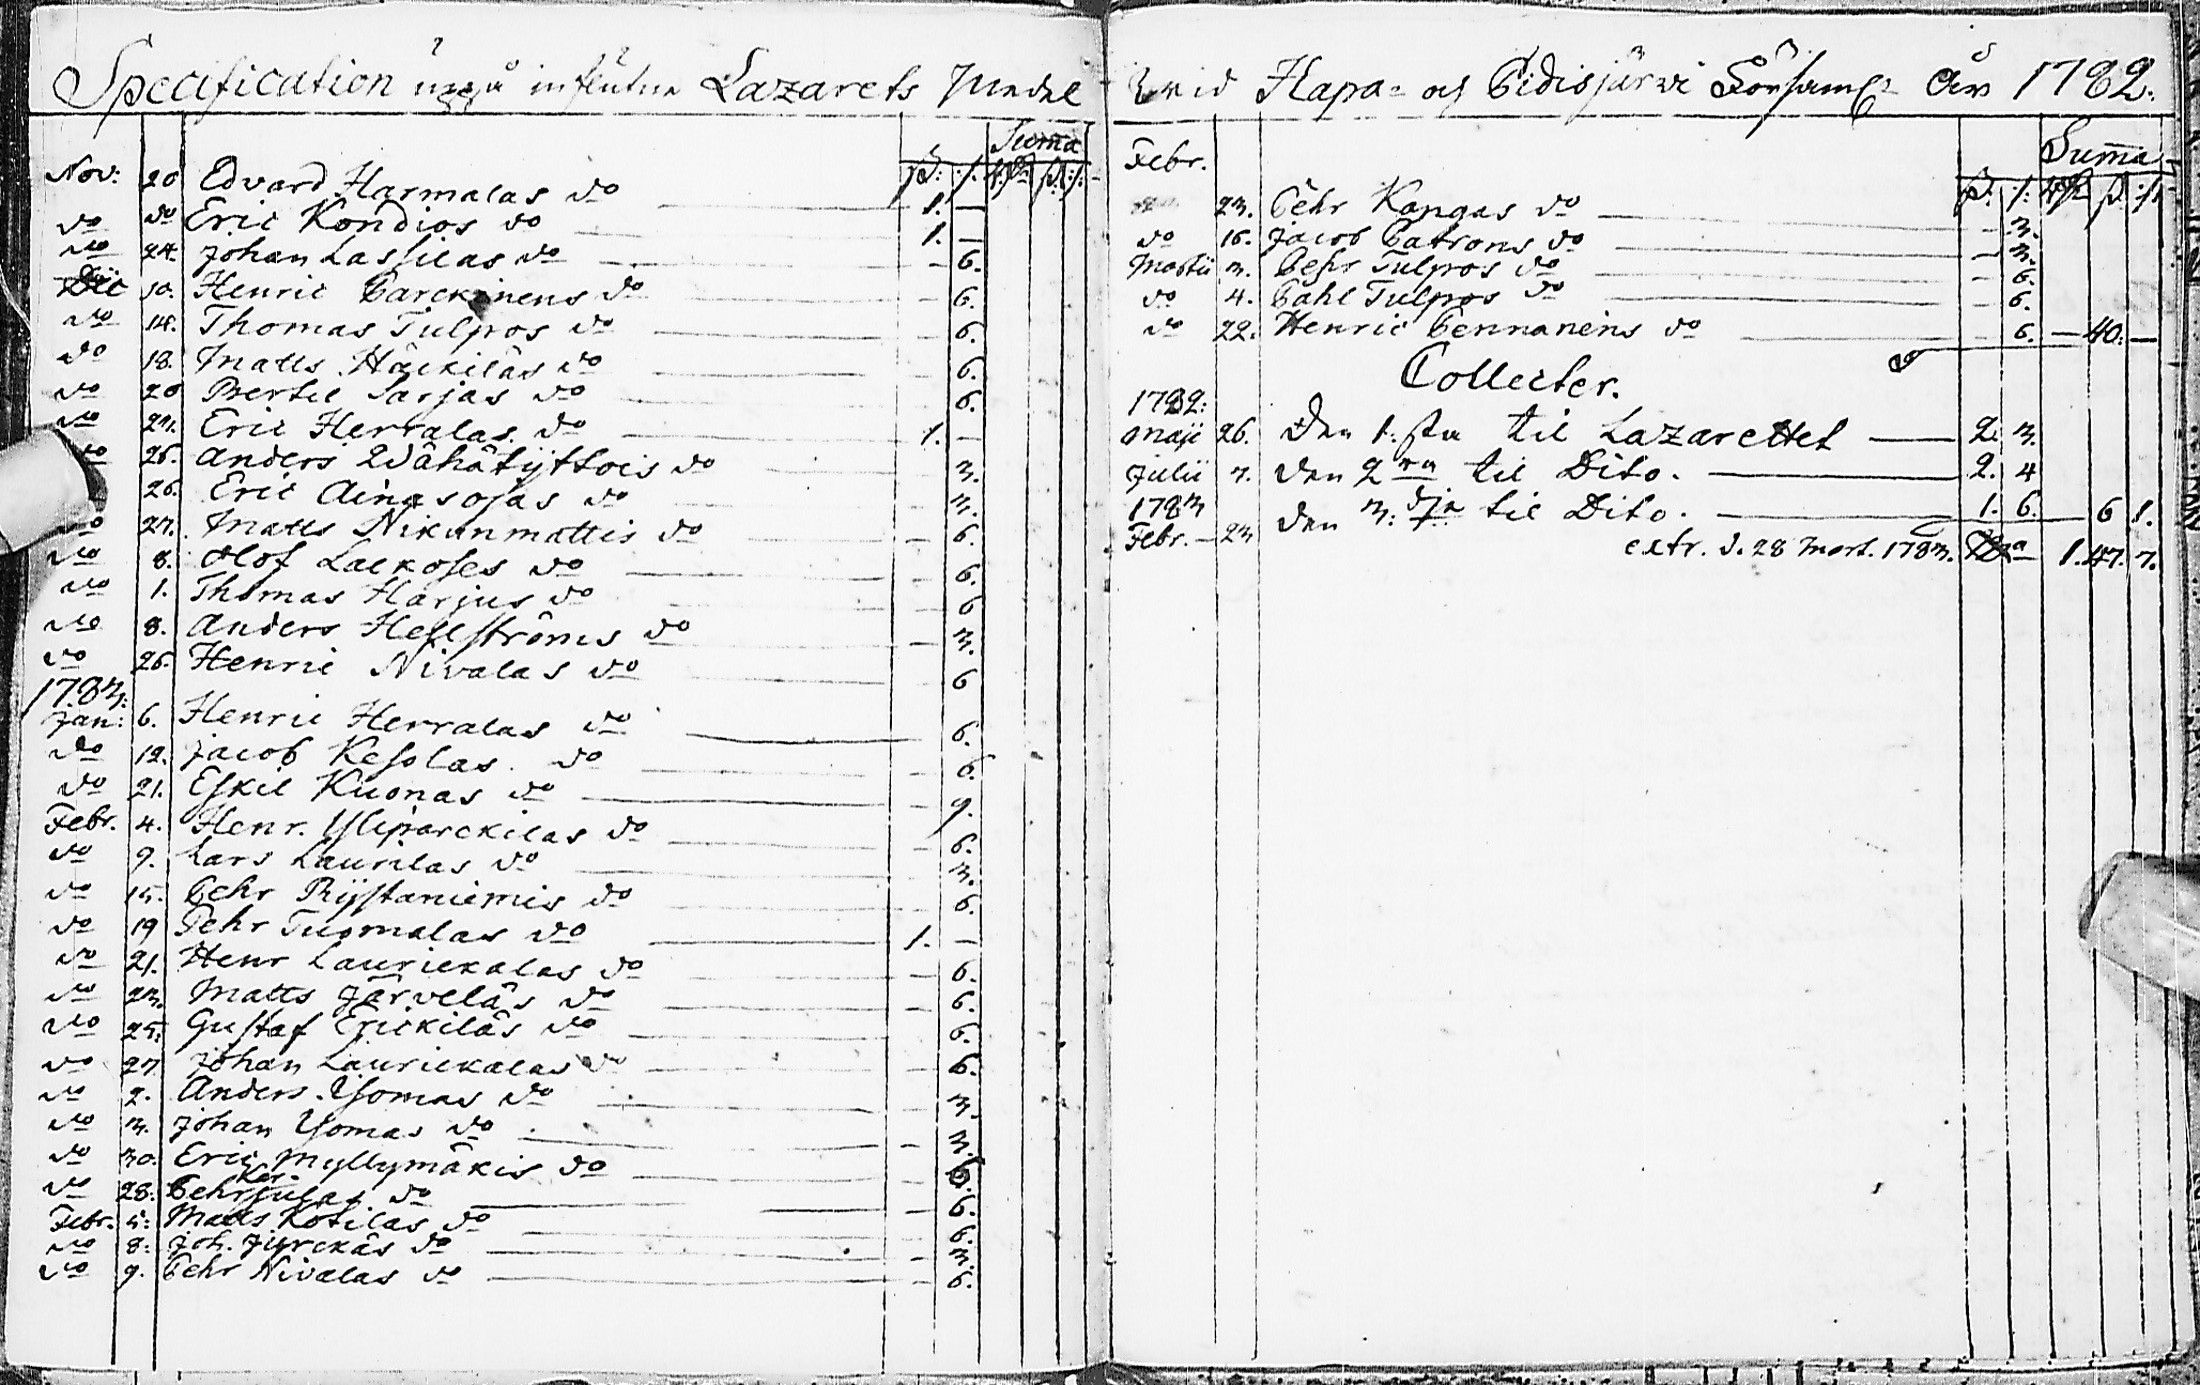 Specification uppå influtne Lazarets Medel
Summa
Nov: 20 Edvard Harmalas do 1. —
do do Eric Kondios do 1. —
do 24 Johan Lassilas do — 6.
Dec 10. Henric Parckinens do — 6.
do 14. Thomas Tulpos do — 6.
do 18. Matts Häickiläs do 6.
do 20 Bertil Sarjas do 6.
do 21. Eric Herralas do 1. —
do 26. Anders Wähätijttois do 3.
26. Eric Aingsojas do 3.
do 27. Matts Nikunmattis do — 6.
do 8. Olof Lackoses do — 6.
do 1. Thomas Harjus do — 6
do 8. Anders Hellströms do — 3.
do 26. Henric Nivalas do 6
1783:
Jan: 6. Henric Herralas do 6.
do 12. Jacob Kesolas do — 6.
do 21. Eskil Kuonas do — 9.
Febr. 4. Henr. Yliparckilas do — 6.
do 9. Lars Laurilas do 3.
do 15. Pehr Rijstaniemis do — 6.
do 19 Pehr Tuomalas do 1. —
do 21. Henr Lauriekalas do — 6.
do 23. Matts Järveläs do — 6.
do 25. Gustaf Erickiläs do 6.
do 27 Johan Lauriekalas do — 6.
do 2. Anders Ysomas do — 3.
do 3. Johan Ysomas do — 3.
do 30. Eric Myllymäkis do — 6.
do 28. Pehr Kersulas do — 6.
Febr. 5: Matts Kotilas do 6.
do 8: Joh. Jyrckäs do — 3.
do 9. Pehr Nivalas do — 6.
wid Hapa= och Pidisjärvi Församl: År 1782.
Summa
Febr.
23. Pehr Kangas do — 3.
do 16. Jacob Patrons do — 3.
Martii 3. Pehr Tulpos do — 6.
do 4. Pahl Tulpos do — 6.
do 22. Henric Pennanens do — 6. — 40. —
Collecter.
1782:
Maji 26. Den 1:sta til Lazarettet 2. 3.
Julii 7. Den 2:ra til Dito. 2. 4
1783
Febr. — 23 Den 3:dje til Dito. 1. 6. 6 1.
extr. d. 28 Mart. 1783. 1. 47. 7.